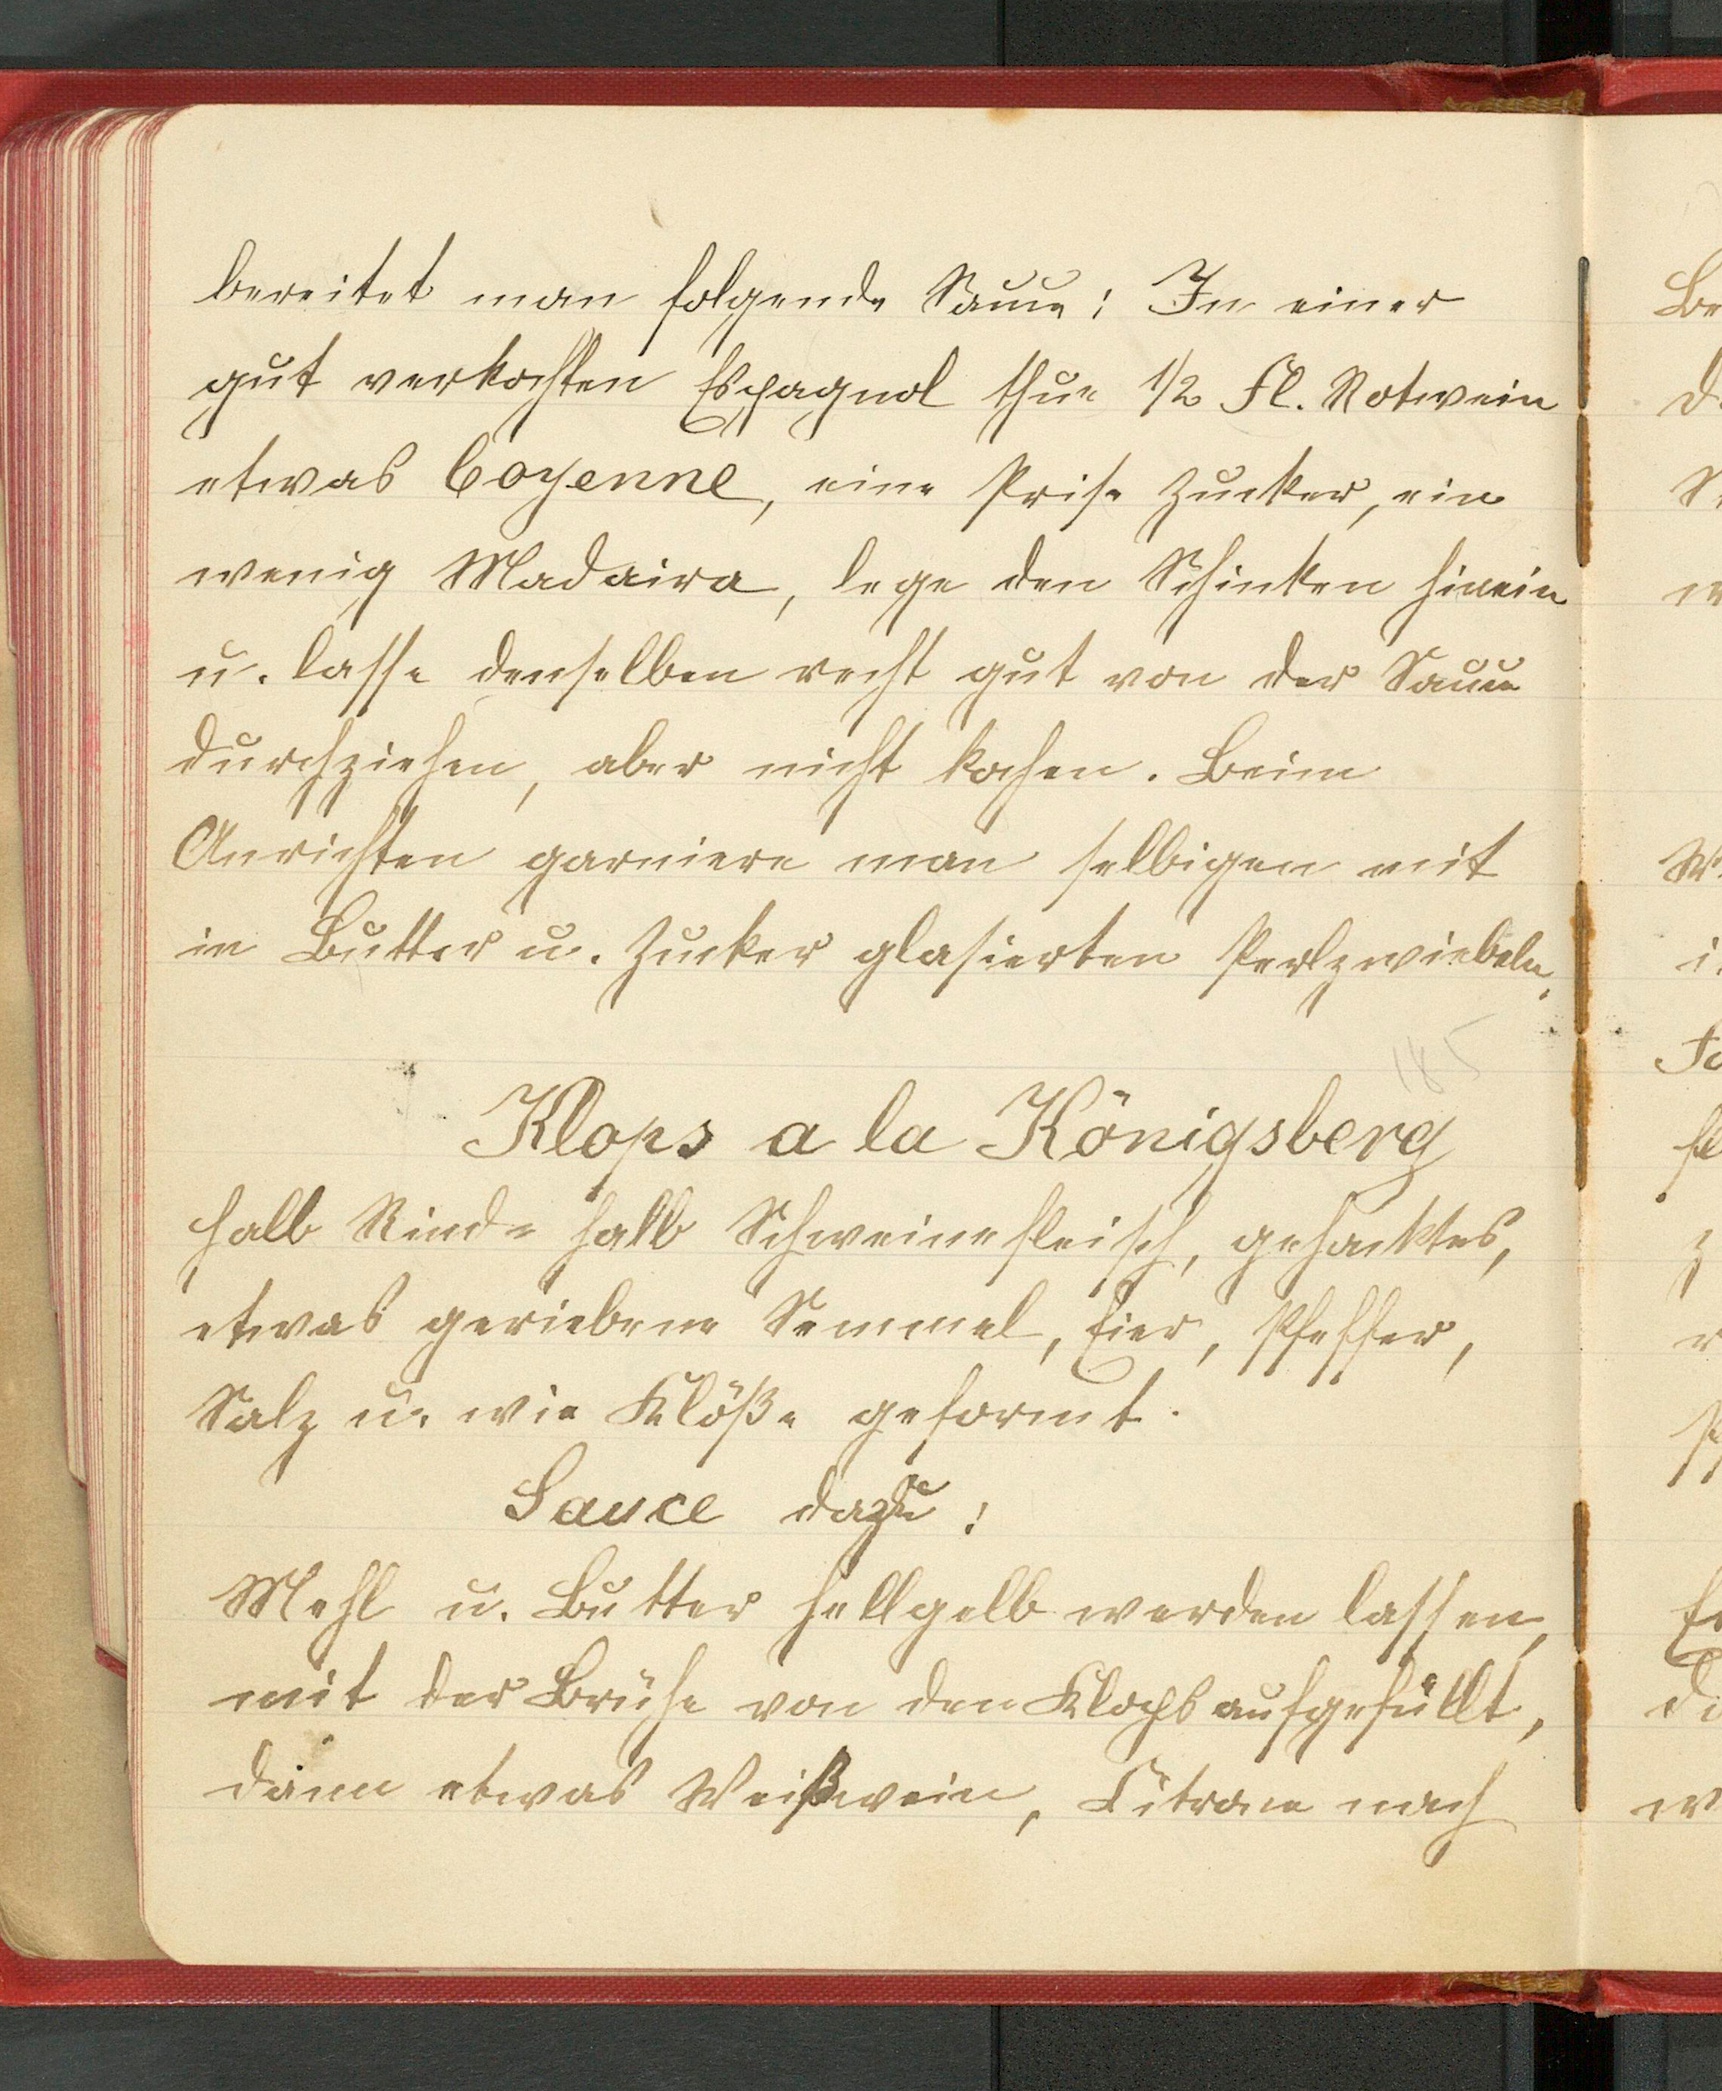 bereitet man folgende Sauce: In einer
gut verkochten Espagnol thue 1/2 Fl. Rotwein
etwas Coyenne, eine Prise Zucker, ein
wenig Madaira, lege den Schinken hinein
u. lasse denselben recht gut von der Sauce
durchziehen, aber nicht kochen. Beim
Anrichten garniere man selbigen mit
in Butter u. Zucker glasierten Perlzwiebeln.
185
Klops a la Königsberg
halb Rind= halb Schweinefleisch, gehacktes,
etwas geriebene Semmel, Eier, Pfeffer,
Salz u. wie Klöße geformt.
Sauce dazu:
Mehl u. Butter hellgelb werden lassen,
mit der Brühe von den Klops aufgefüllt,
dann etwas Weißwein, Citrone nach